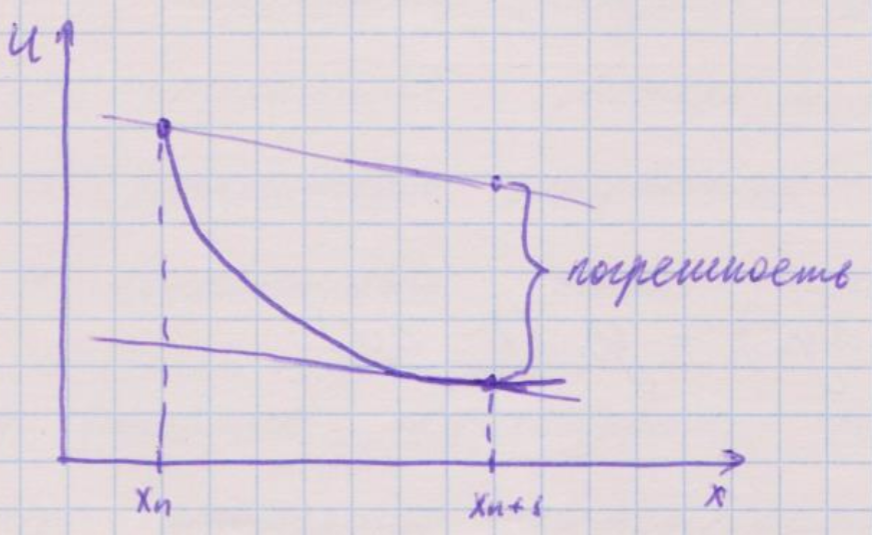 u
погрешность
xn
xn+1
x